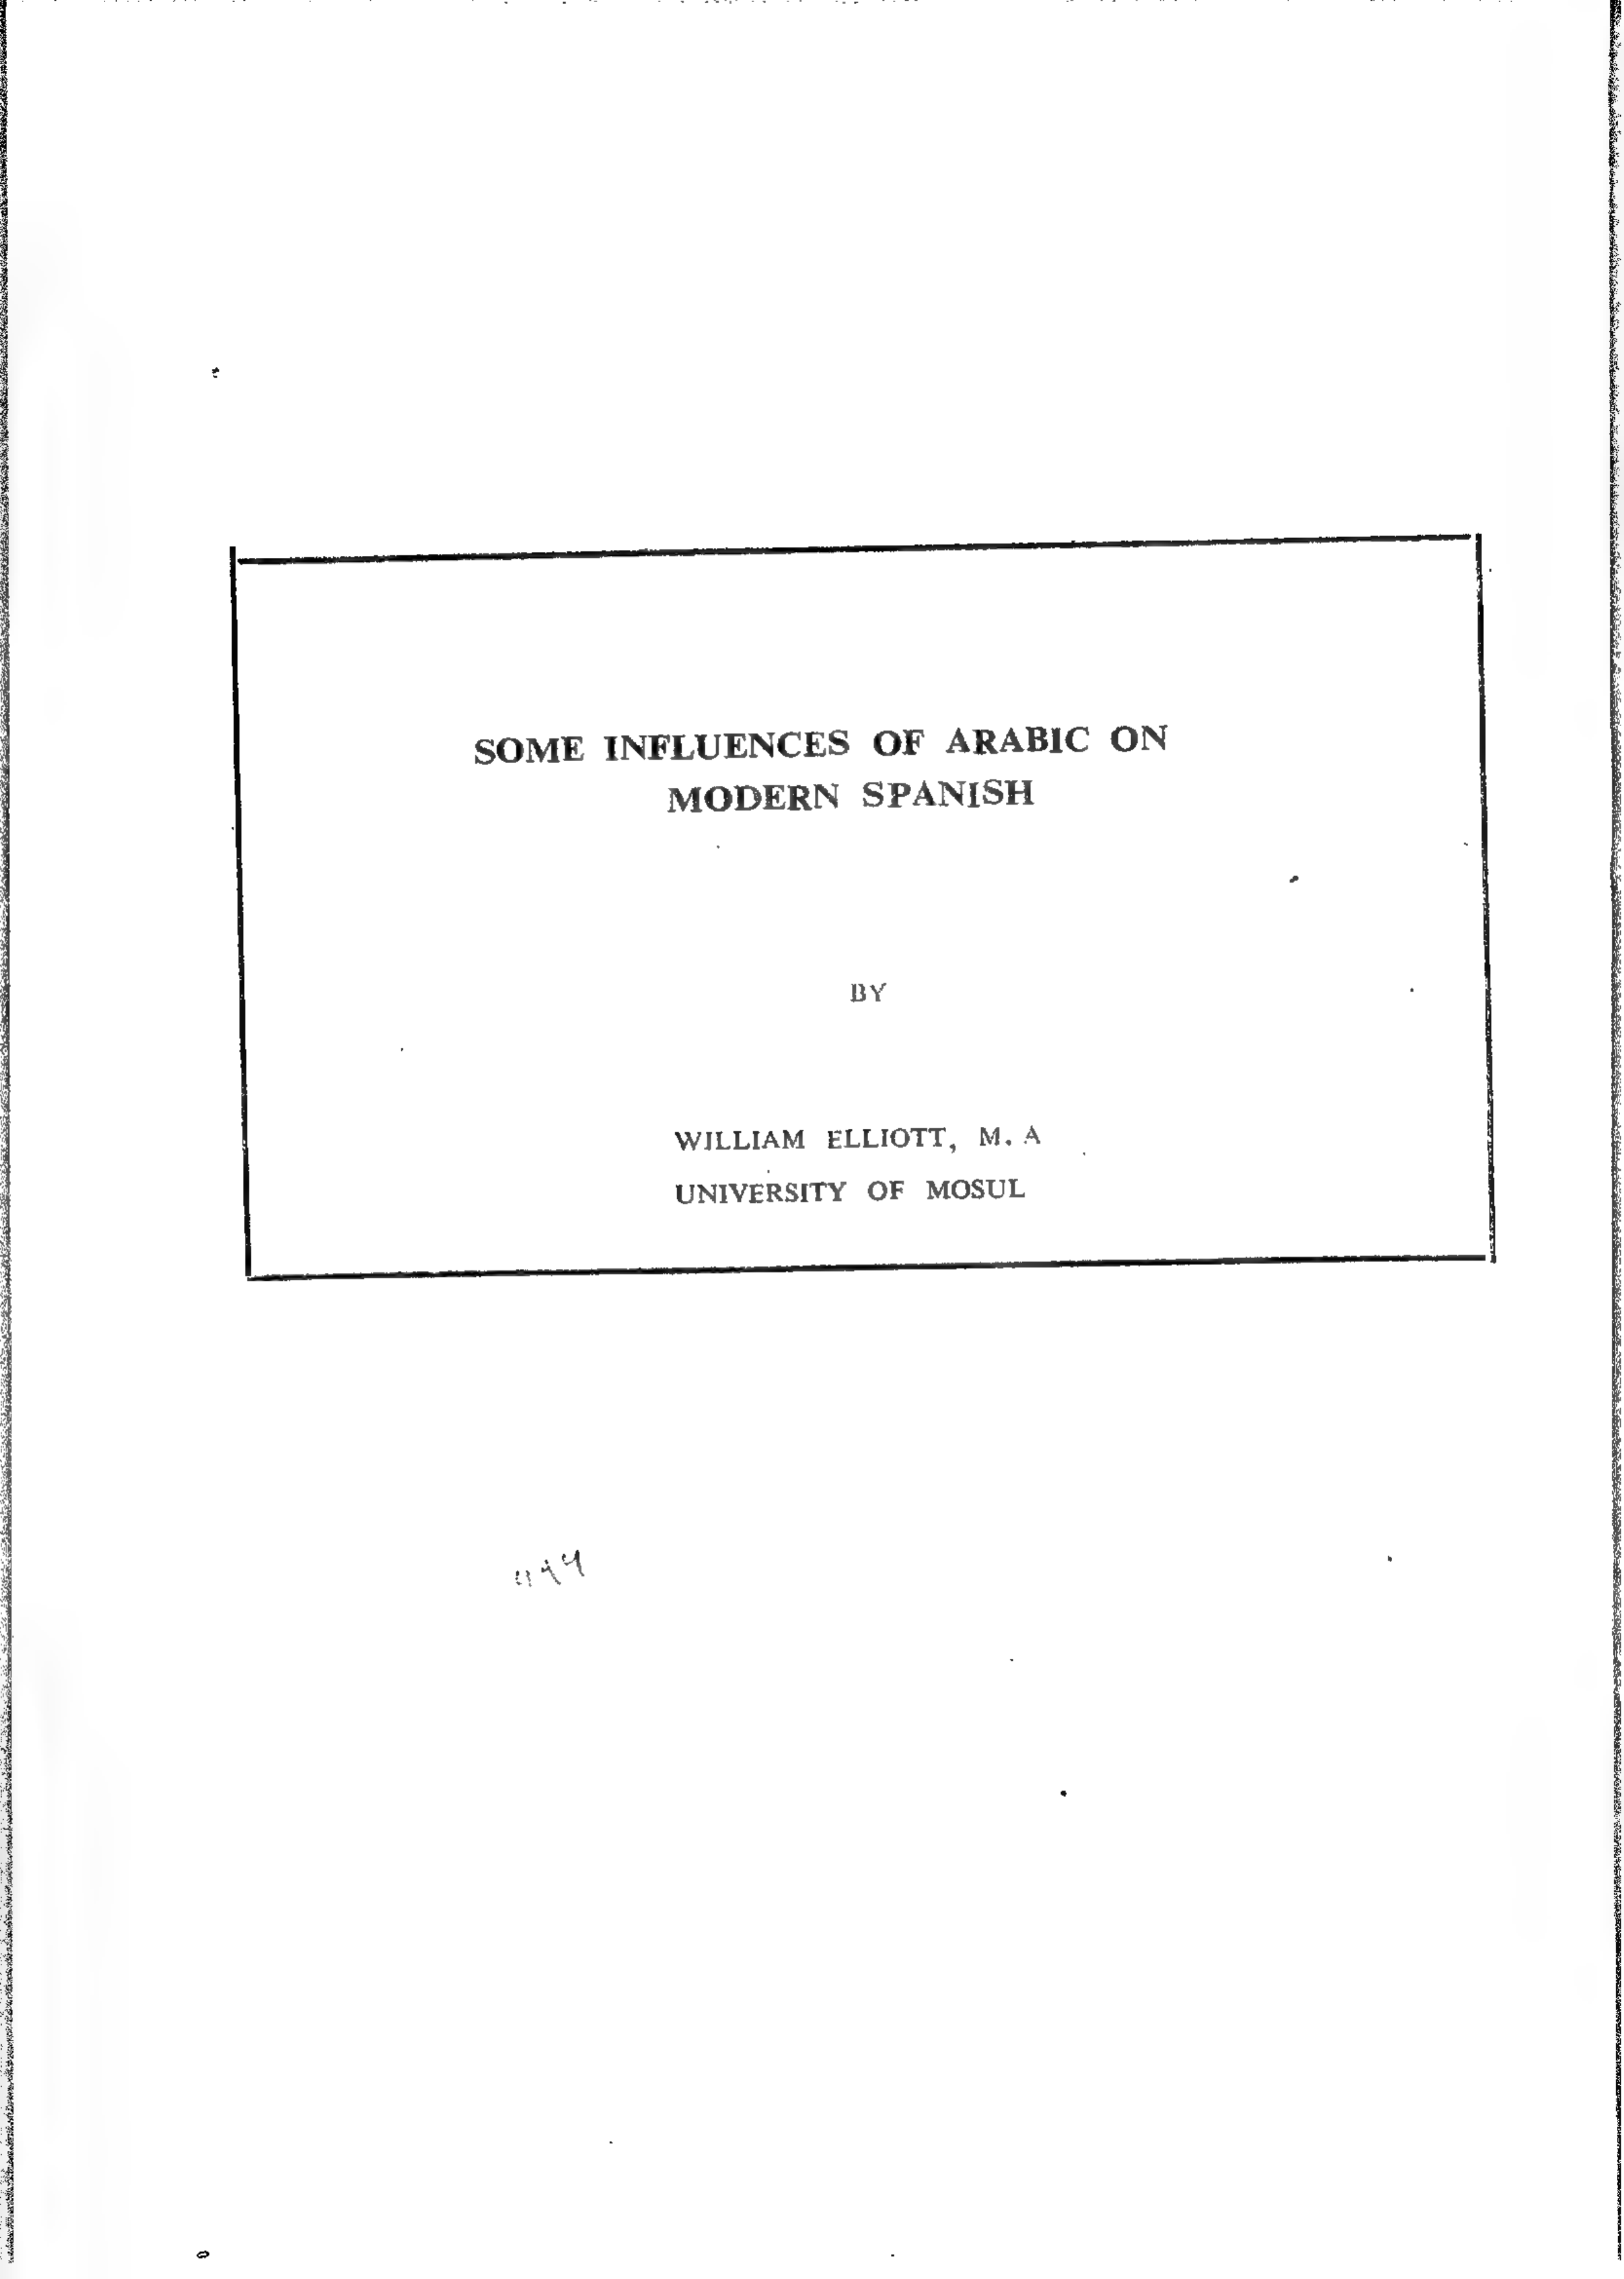 SOME INFLUENCES OF ARABIC ON
MODERN SPANISH
BY
WILLIAM ELLIOTT, M. A
UNIVERSITY OF MOSUL